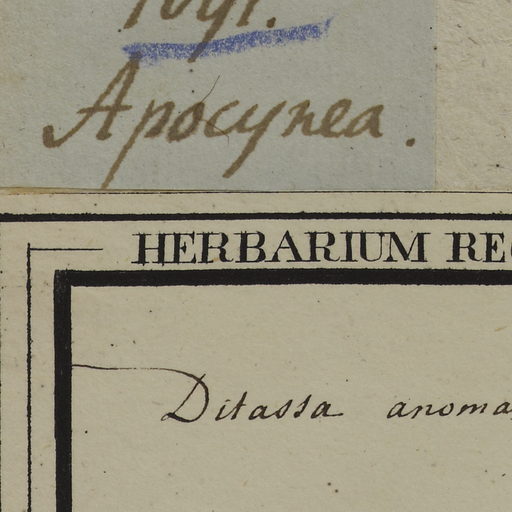 Apocynea.
HERBARIUM RE
Ditassa anoma